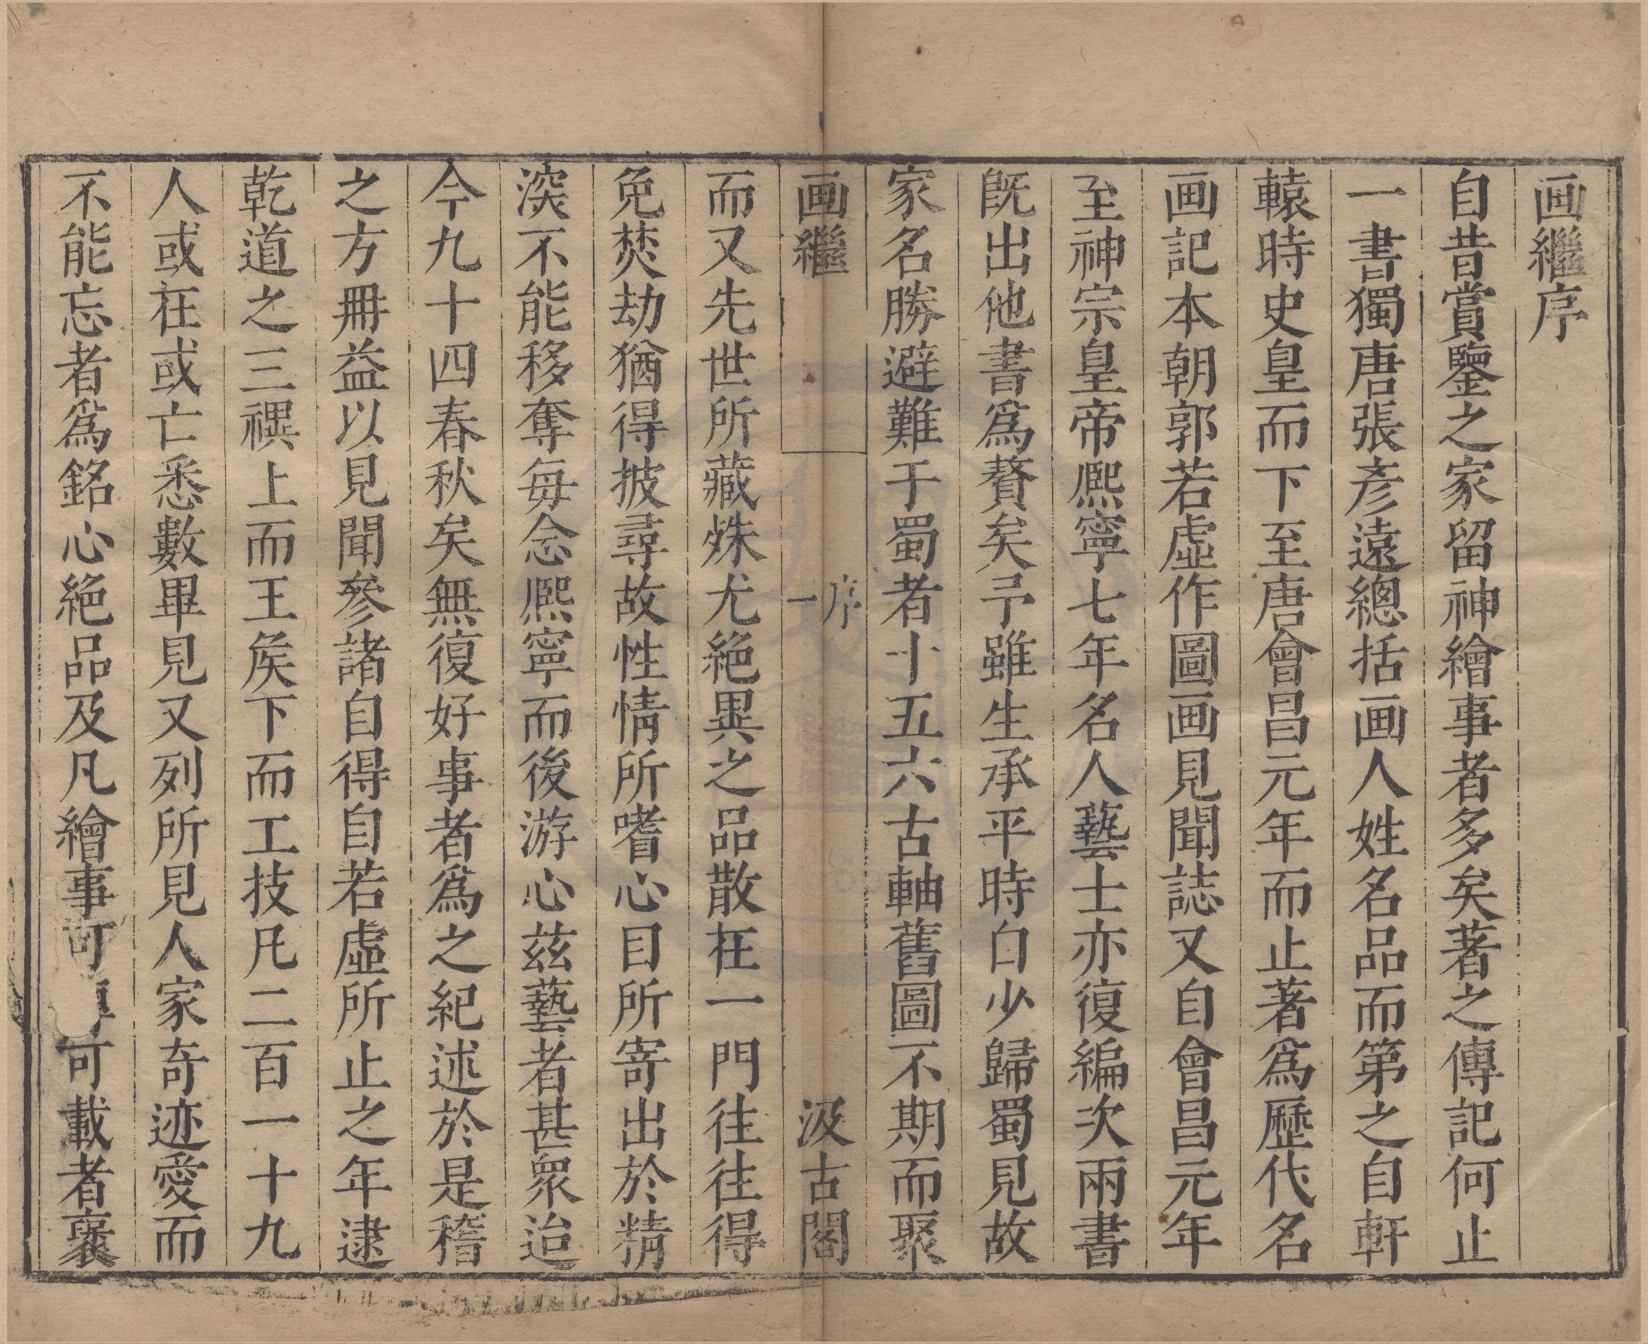 画繼序
自昔賞鑒之家留神繪事者多矣著之傳記何止
一書獨唐張彥遠總括画人姓名品而第之自軒
轅時史皇而下至唐會昌元年而止著爲歷代名
画記本朝郭若虛作圖画見聞誌又自會昌元年
至神宗皇帝熙寧七年名人藝士亦復編次兩書
既出他書爲贅矣予雖生承平時自少歸蜀見故
家名勝避難于蜀者十五六古軸舊圖不期而聚
画繼
序
一
汲古閣
而又先世所藏殊尤絶異之品散在一門往往得
免焚劫猶得披尋故性情所嗜心目所寄出於精
深不能移奪每念熙寧而後游心茲藝者甚衆迨
今九十四春秋矣無復好事者爲之紀述於是稽
之方冊益以見聞參諸自得自若虛所止之年逮
乾道之三禩上而王矦下而工技凡二百一十九
人或在或亡悉數畢見又列所見人家奇迹愛而
不能忘者爲銘心絶品及凡繪事可 可載者裒